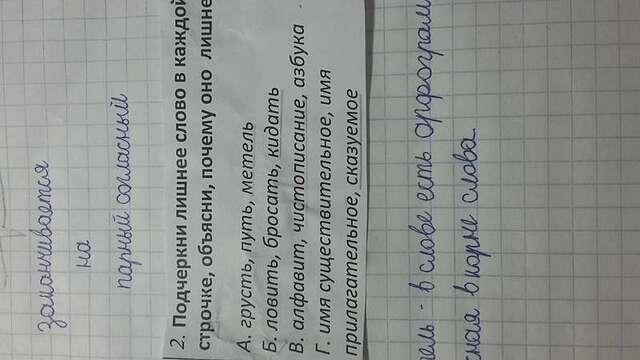 заканчивается
на
парный согласный
2. Подчеркни лишнее слово в каждой
строчке, объясни, почему оно лишне
А. грусть, путь, метель
Б. ловить, бросать, кидать
В. алфавит, чистописание, азбука
Г. имя существительное, имя
прилагательное, сказуемое
ель - в слове есть орфограм
ная в корне слова.